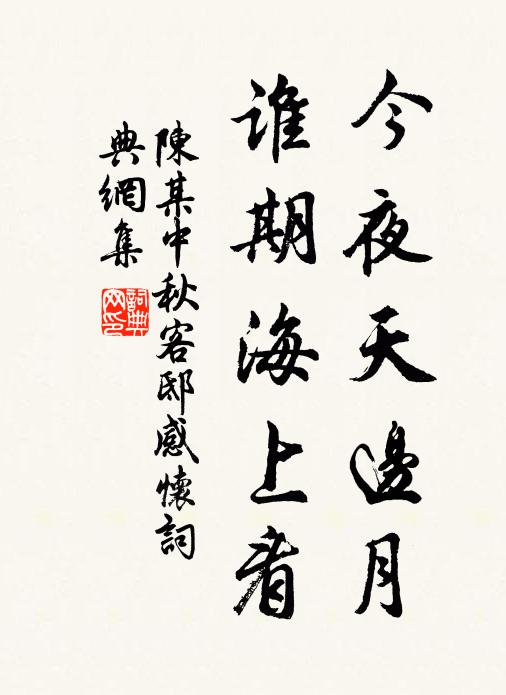 今夜天邊月
誰期海上看
陳某中秋客邸感懷詞
典網集
詞典網印